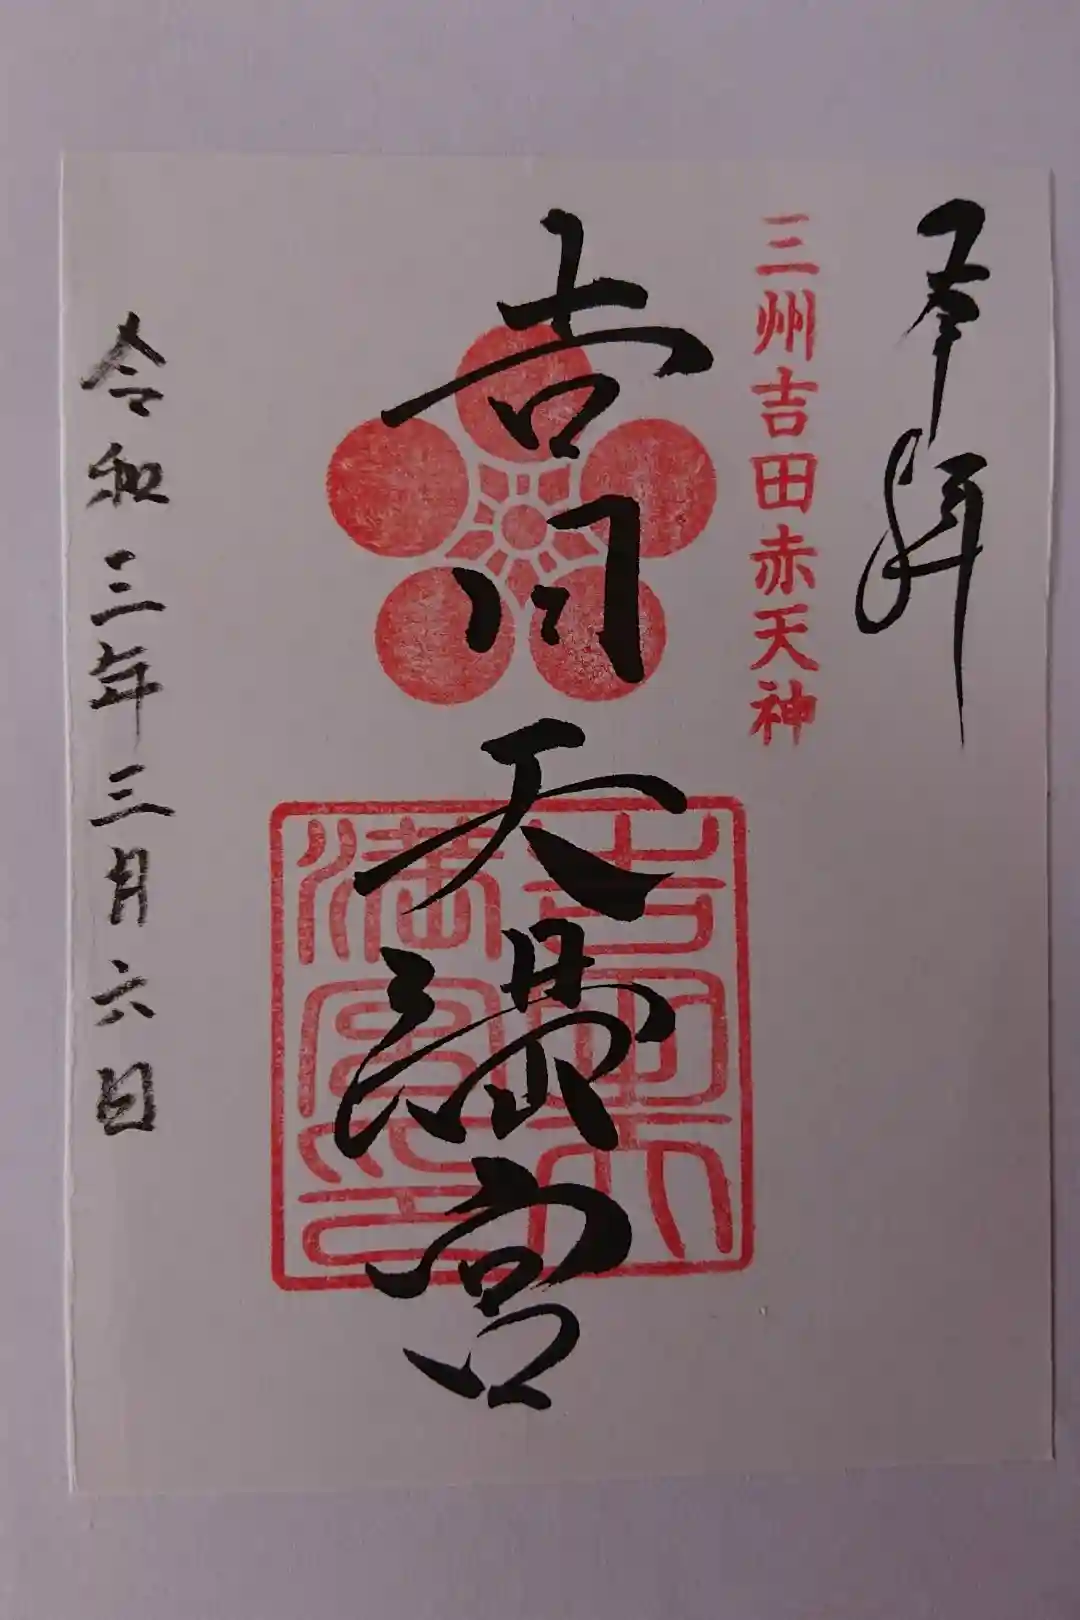 奉拝
三州吉田赤天神
吉田天満宮
吉田天満宮印
令和三年三月六日